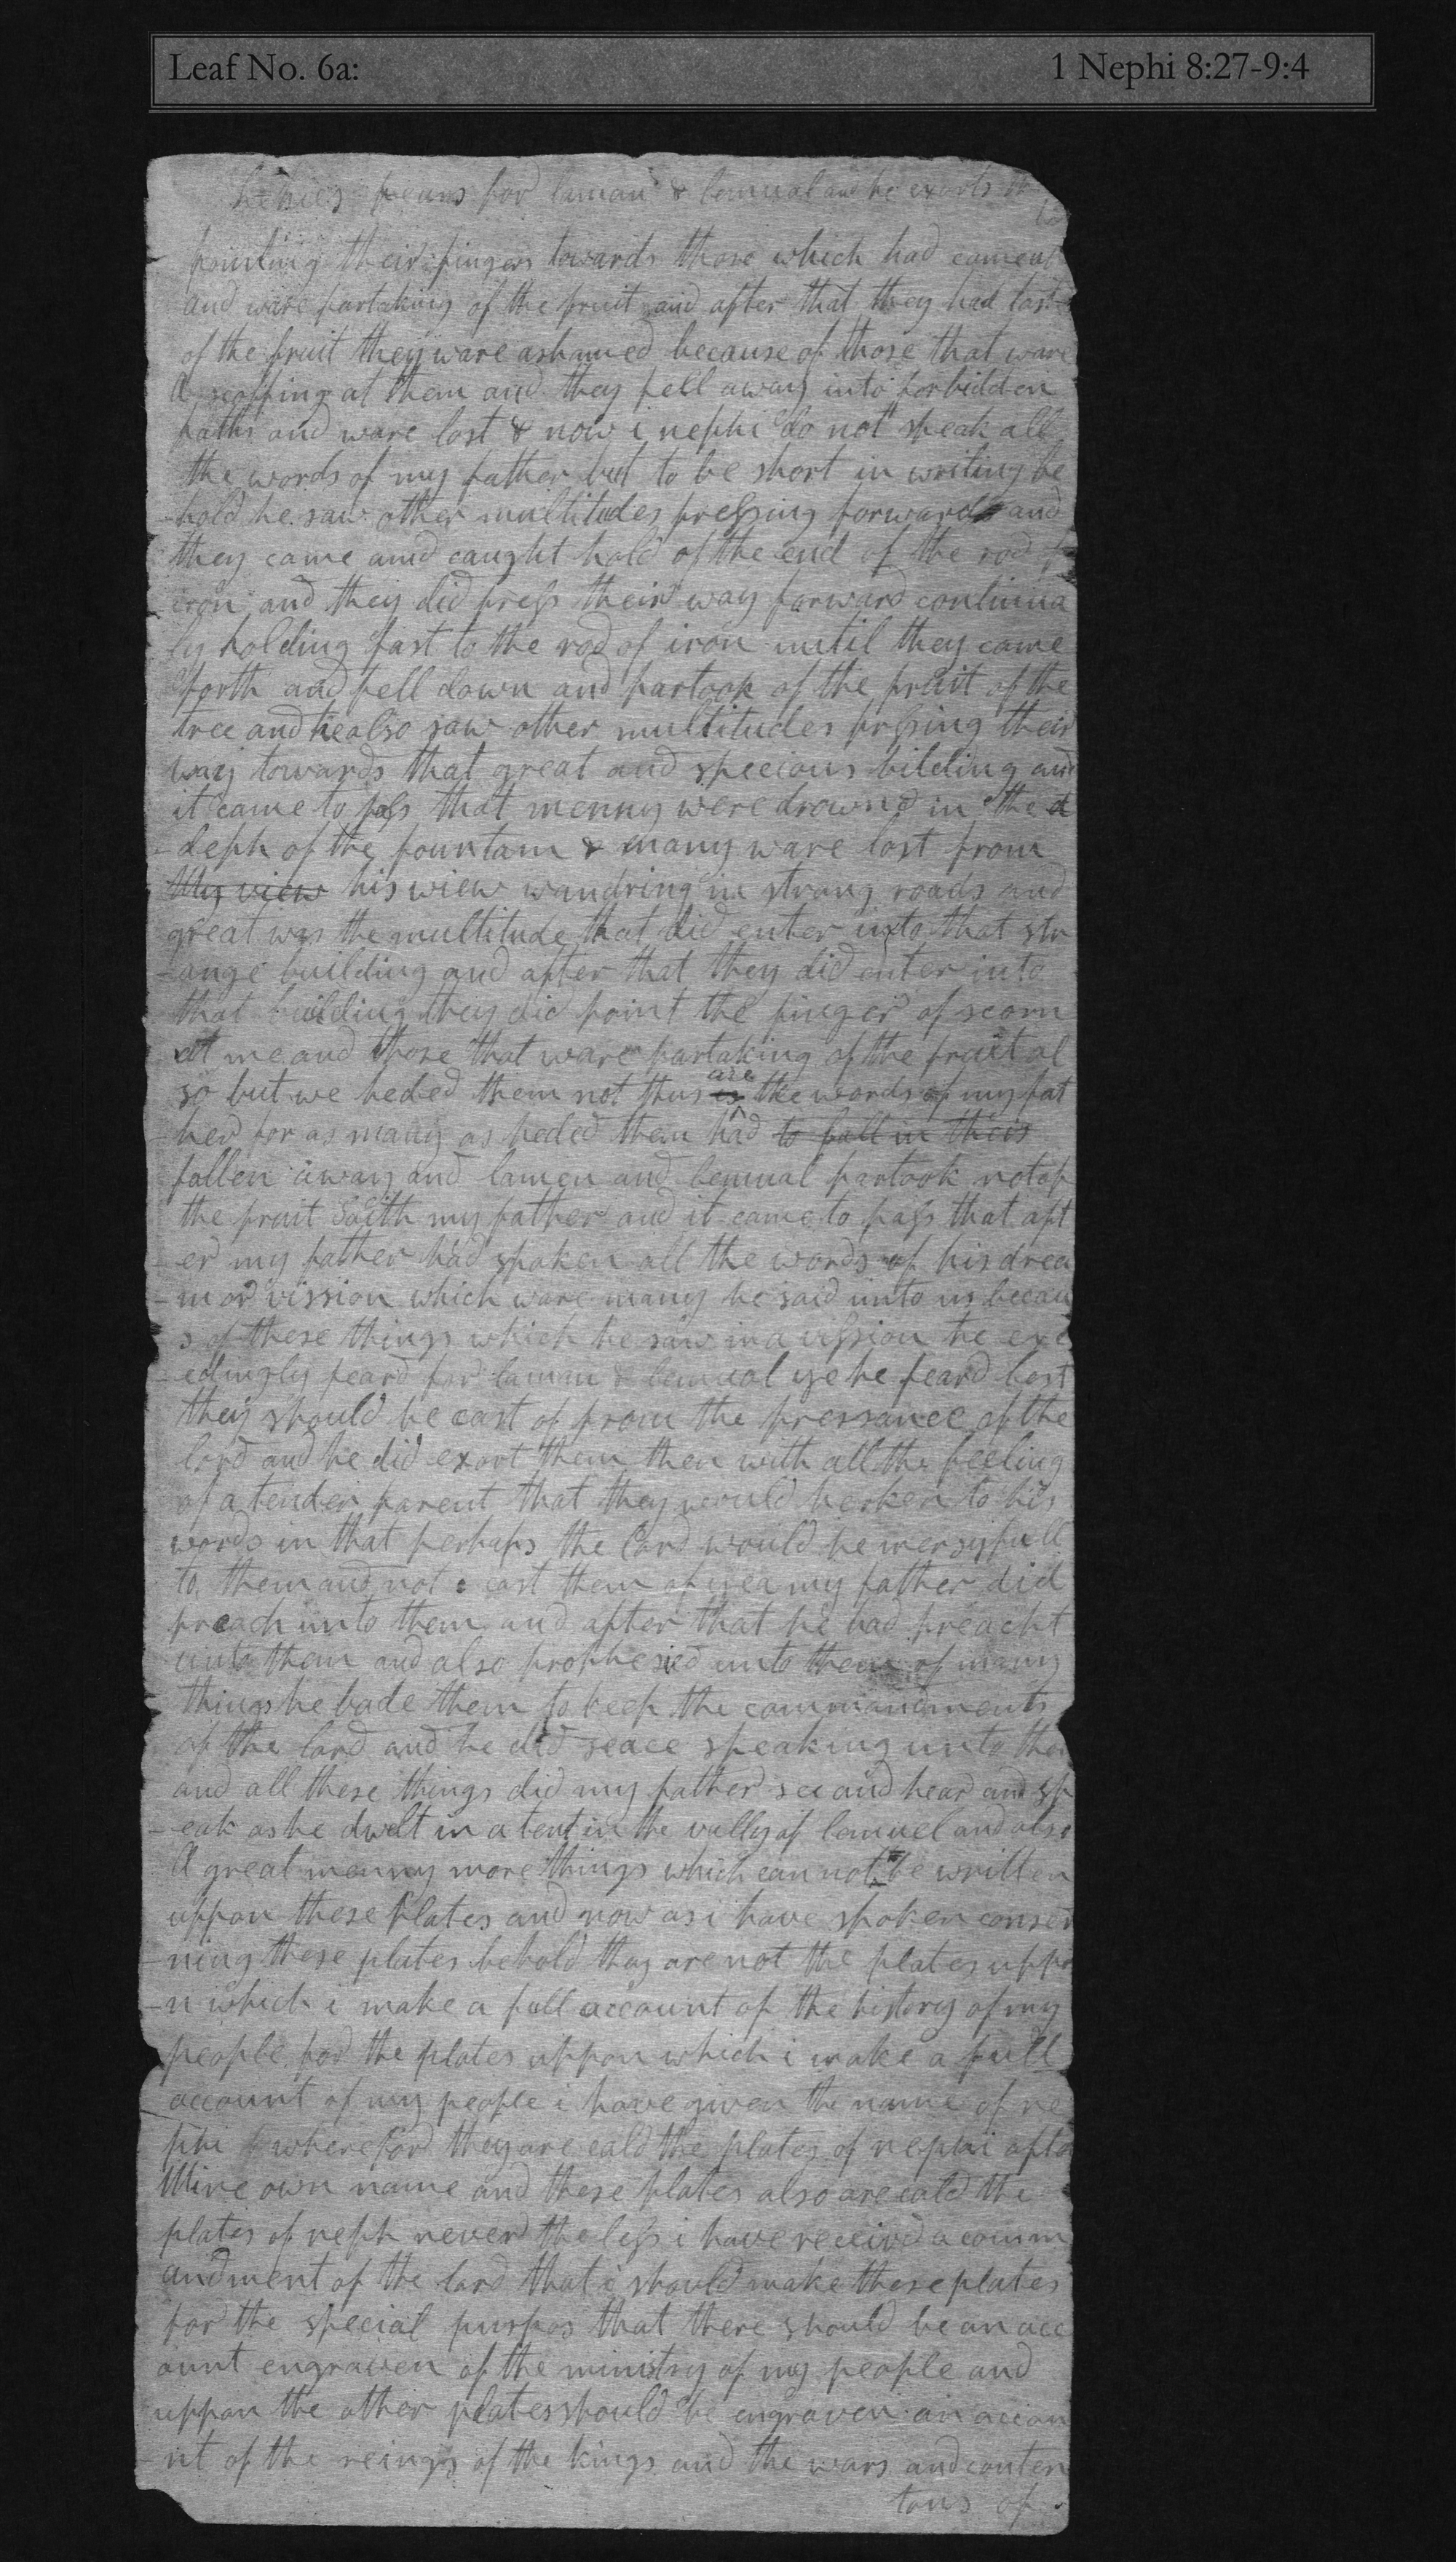 Leaf No. 6a: 1 Nephi 8:27-9:4
Lehies fears for laman & lemual and he exorts
pointing their fingers towards those which had come at
and ware partaking of the fruit and after that they had tast
of the fruit they ware ashamed because of those that ware
A scoffing at them and they fell away into forbidden
paths and ware lost & now i nephi do not speak all
the words of my father but to be short in writing be
-hold he saw other multitudes preſsing forwards and
they came and caught hold of the end of the rod of
iron and they did preſs their way forward continua
ly holding fast to the rod of iron until they came
forth and fell down and partook of the fruit of the
tree and he also saw other multitudes prſsing their
way towards that great and specious bilding and
it came to paſs that menny were drownd in the d
-deph of the fountain & many ware lost from
My view his view wandring in strang roads and
great was the multitude that did enter into that str
-ange building and after that they did enter into
that building they did point the finger of scorn
at me and those that ware partaking of the fruit al
so but we heded them not thus is are the words of my fat
-her for as many as heded them had to fall in theis
fallen away and lamen and lemual partook not of
the fruit Saith my father and it came to paſs that aft
-er my father had spoken all the words of his drea
-m or vission which ware many he said unto us becau
s of these things which he saw in a viſsion he exe
-edingly feard for lamun & lemual ye he feard lest
they should be cast of from the pressance of the
lord and he did exort them then with all the feeling
of a tender parent that they would herken to his
words in that perhaps the Lord would be mersyfull
to them and not cast them of yea my father did
preach unto them and after that he had preacht
unto them and also prophesied unto them of many
things he bade them to keep the commandments
of the lord and he did seace speaking unto them
and all these things did my father see and hear and sp
-eak as he dwelt in a tent in the vally of lemuel and also
A great menny more things which can not be written
uppon these plates and now as i have spoken conser
-ning these plates behold thay are not the plates uppo
-n which i make a full account of the history of my
people for the plates uppon which i make a full
account of my people i have given the name of ne
phi wherefore they are cald the plates of nephi afte
Mine own name and these plates also are cald the
plates of neph never the leſs i have receivd a comm
andment of the lord that i should make these plates
for the special purpos that there should be an acc
ount engraven of the ministry of my people and
uppon the other plates should be engraven an accou
-nt of the reings of the kings and the wars and conten
tons of